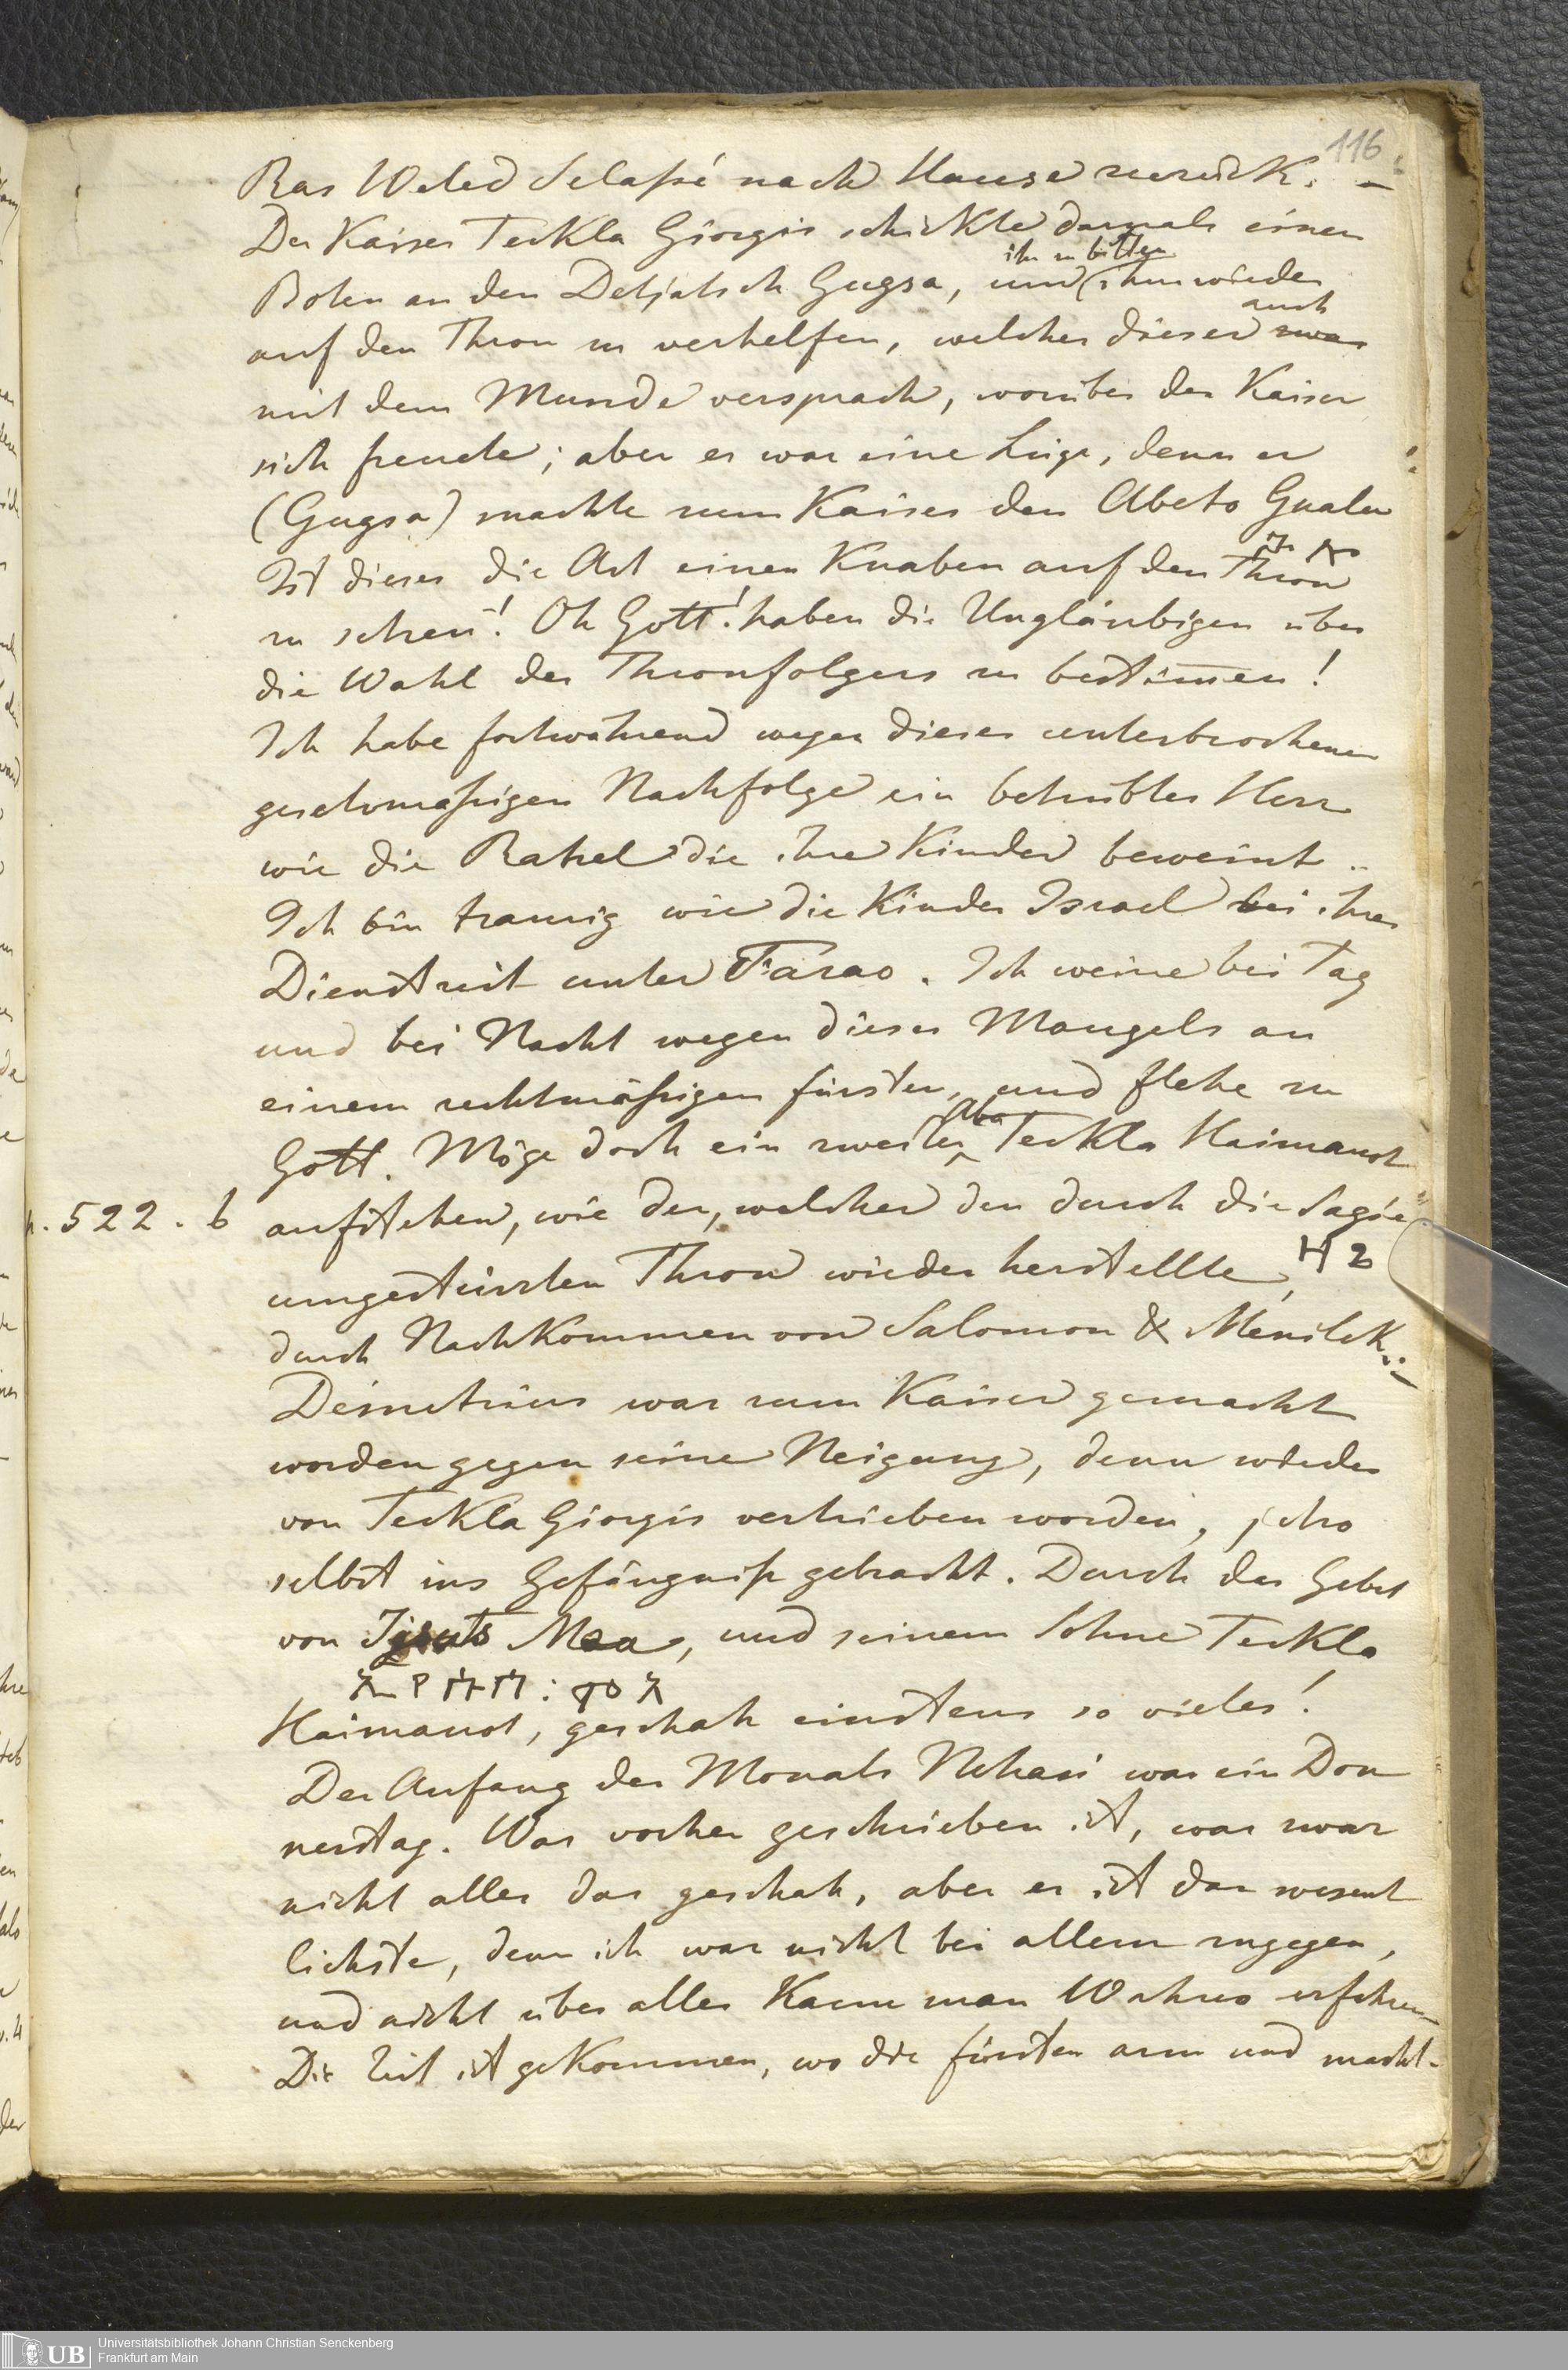 116
Ras Weled Selaßé nach Hause zurück. –
Der Kaiser Teckla Giorgis schickte damals einen
ihn zu bitten
Boten an den Detjatsch Gugsa, und ihm wieder
auch
auf den Thron zu verhelfen, welches dieser zwar
mit dem Munde versprach, worüber der Kaiser
sich freute; aber es war eine Lüge, denn er
(Gugsa) machte zum Kaiser den Abeto Gualu
Ist dieses die Art einen Knaben auf den Thron
zu setzen! Oh Gott! haben die Ungläubigen über
die Wahl des Thronfolgers zu bestim̄en!
Ich habe fortwährend wegen dieser unterbrochenen
gesetzmäßigen Nachfolge ein betrübtes Herz
wie die Rahel die ihre Kinder beweint ..
Ich bin traurig wie die Kinder Israel bei ihrer
Dienstzeit unter Farao. Ich weine bei Tag
und bei Nacht wegen dieses Mangels an
einem rechtmäßigen Fürsten, und flehe zu
Aba
Gott. Möge doch ein zweiter Teckla Haimanot
p. 522. b aufstehen, wie der, welcher den durch die Sagée
umgestürzten Thron wieder herstellte,
durch Nachkommen von Salomon & Menilek. –
Demetrius war zum Kaiser gemacht
worden gegen seine Neigung, denn wieder
von Teckla Giorgis vertrieben worden, jetzo
selbst ins Gefängniß gebracht. Durch das Gebet
von Mea, und seinem Sohne Teckla
Haimanot, geschah einstens so vieles!
Der Anfang des Monats Nehasi war ein Don
nerstag. Was vorher geschrieben ist, war zwar
nicht alles das geschah, aber es ist das wesent
lichste, denn ich war nicht bei allem zugegen,
und nicht über alles kann man Wahres erfahren
Die Zeit ist gekommen, wo die Fürsten arm und macht-
UB
Universitätsbibliothek Johann Christian Senckenberg
Frankfurt am Main